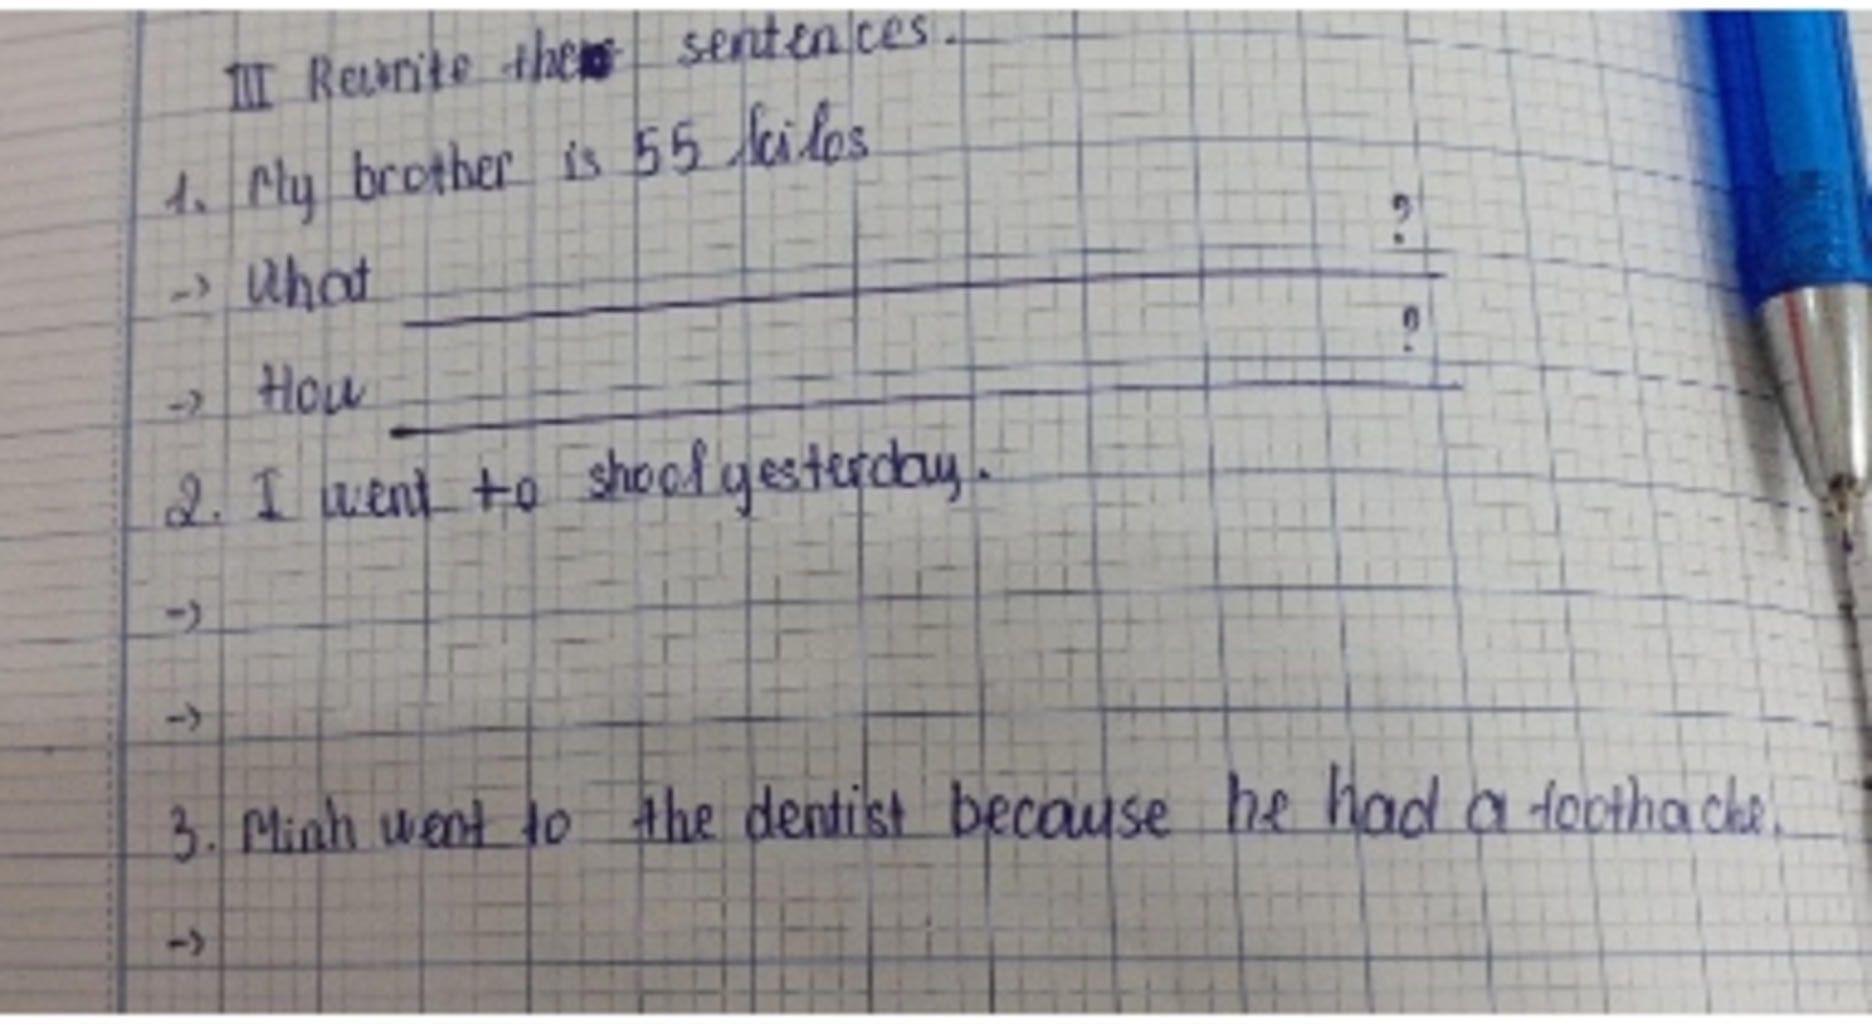 III Rewrite the sentences.
1. My brother is 55 kilos
-> What ?
-> How ?
2. I went to shool yesterday.
->
->
3. Minh went to the dentist because he had a toothache.
->